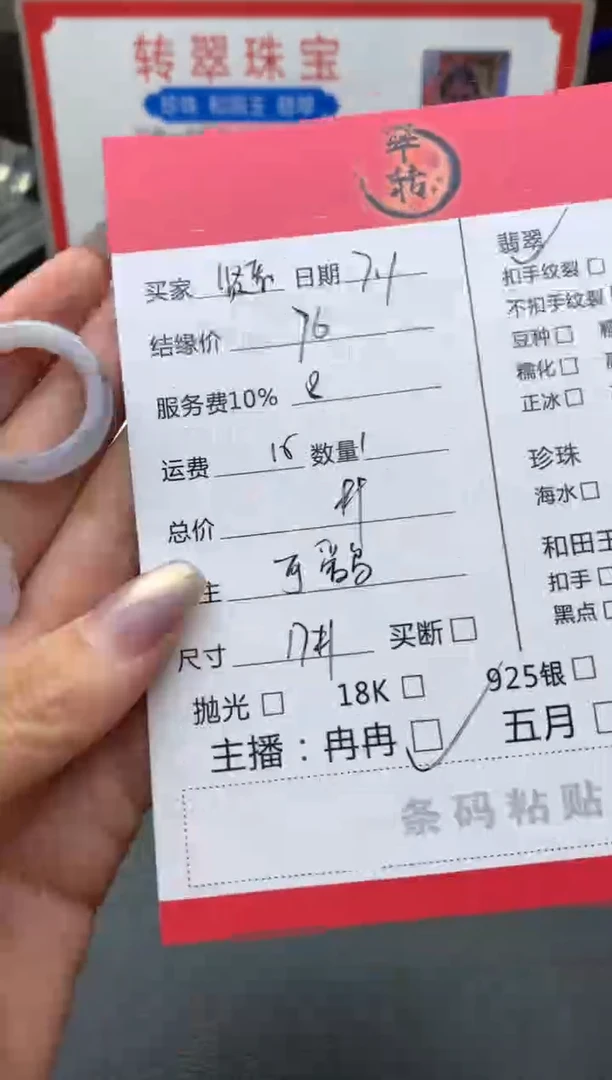 转翠珠宝
珍珠 和田玉 翡翠
翠
转
买家 日期 7.4
结缘价 76
服务费10% 8
运费 15 数量 1
总价
主
尺寸 买断
抛光 18K 925银
主播：冉冉 五月
条码粘贴
翡翠
扣手纹裂
不扣手纹裂
豆种
糯化
正冰
珍珠
海水
和田玉
扣手
黑点